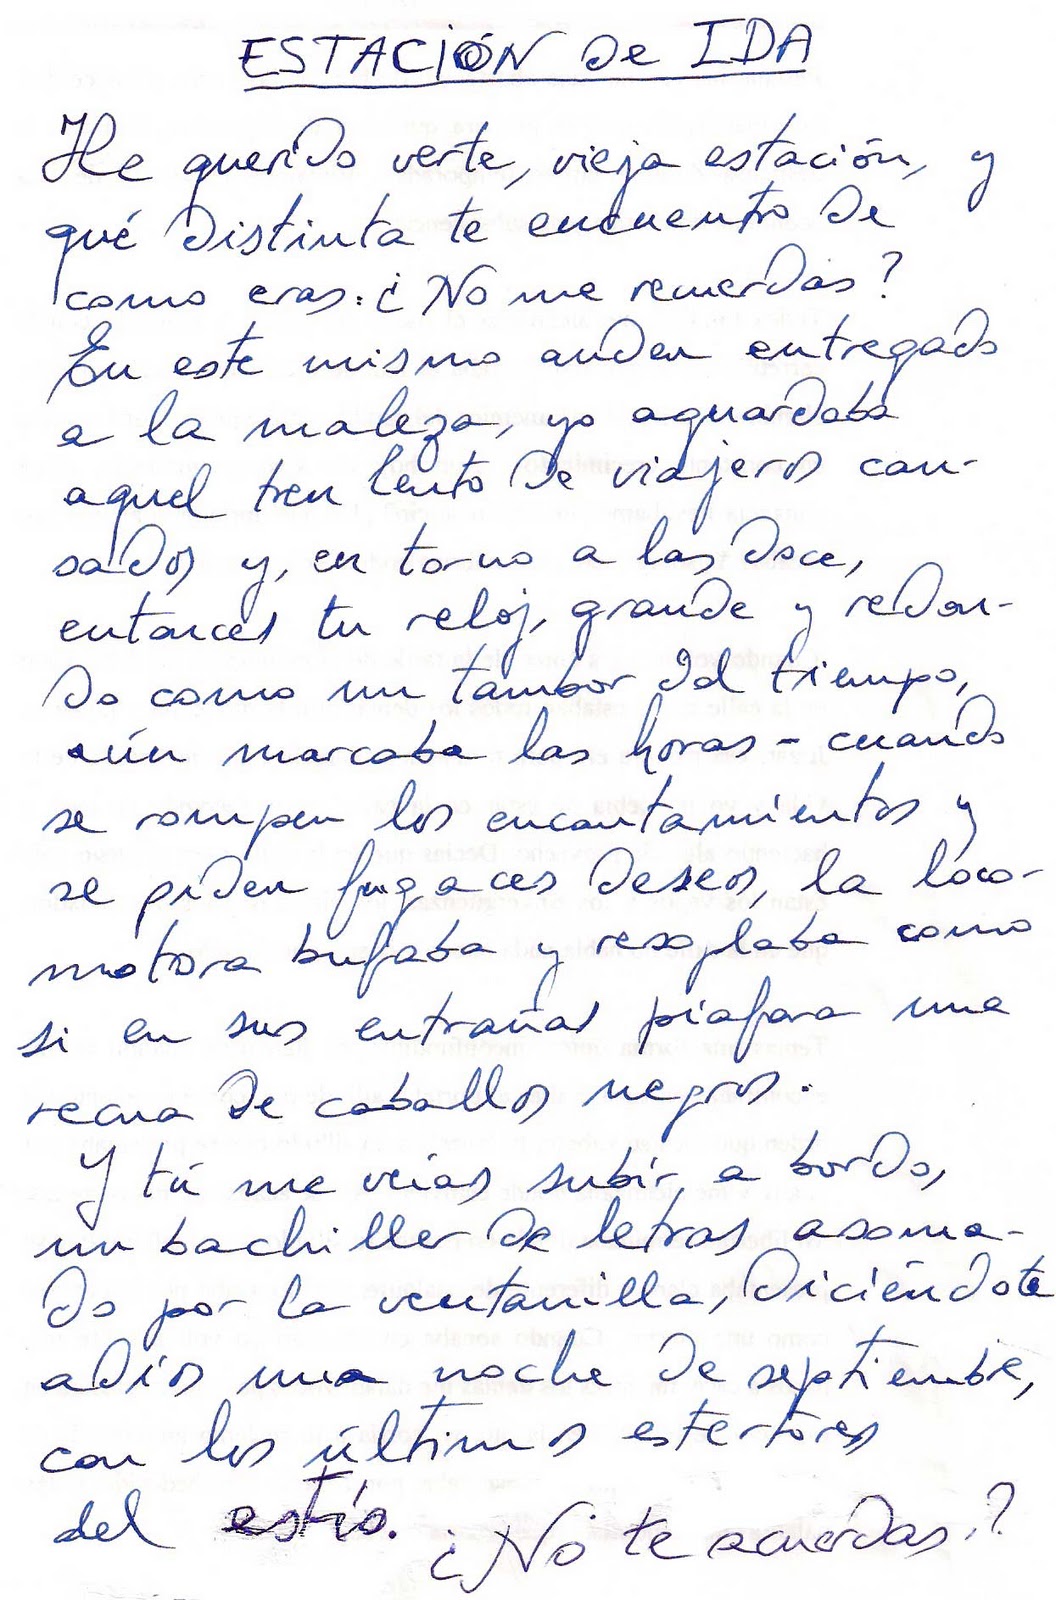 ESTACIÓN de IDA
He querido verte, vieja estación, y
qué distinta te encuentro de
como eras. ¿No me recuerdas?
En este mismo anden entregado
a la maleza, yo aguardaba
aquel tren lento de viajeros can-
sados y, en torno a las doce,
entonces tu reloj, grande y redon-
do como un tambor del tiempo,
aún marcaba las horas - cuando
se rompen los encantamientos y
se piden fugaces deseos, la loco-
motora bufaba y resoplaba como
si en sus entrañas piafara una
recua de caballos negros.
Y tú me veías subir a bordo,
un bachiller de letras asoma-
do por la ventanilla, diciéndote
adiós una noche de septiembre,
con los últimos estertores
del estío. ¿No te acuerdas?